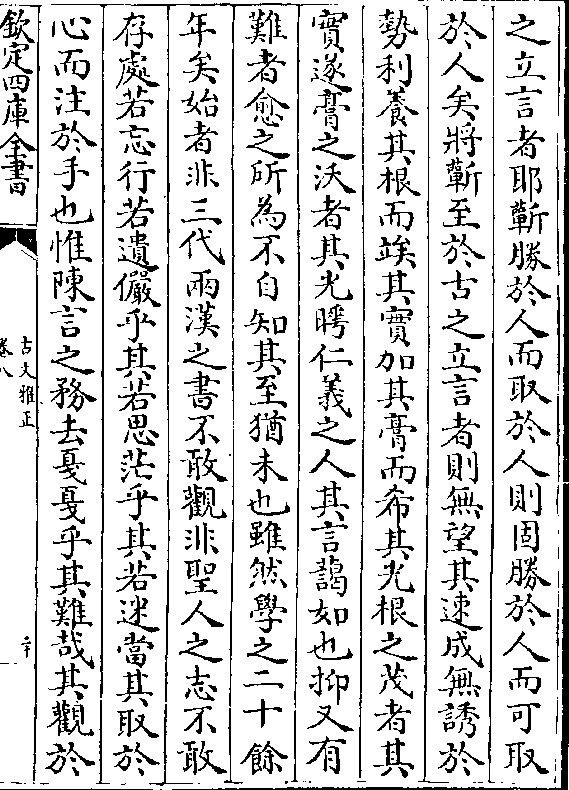 之立言者耶蘄勝於人而取於人則固勝於人而可取
於人矣將蘄至於古之立言者則無望其速成無誘於
勢利養其根而竢其實加其膏而希其光根之茂者其
實遂膏之沃者其光曄仁義之人其言藹如也抑又有
難者愈之所為不自知其至猶未也雖然學之二十餘
年矣始者非三代兩漢之書不敢觀非聖人之志不敢
存處若忘行若遺儼乎其若思茫乎其若迷當其取於
心而注於手也惟陳言之務去戛戛乎其難哉其觀於
欽定四庫全書
古文雅正
卷八
二十